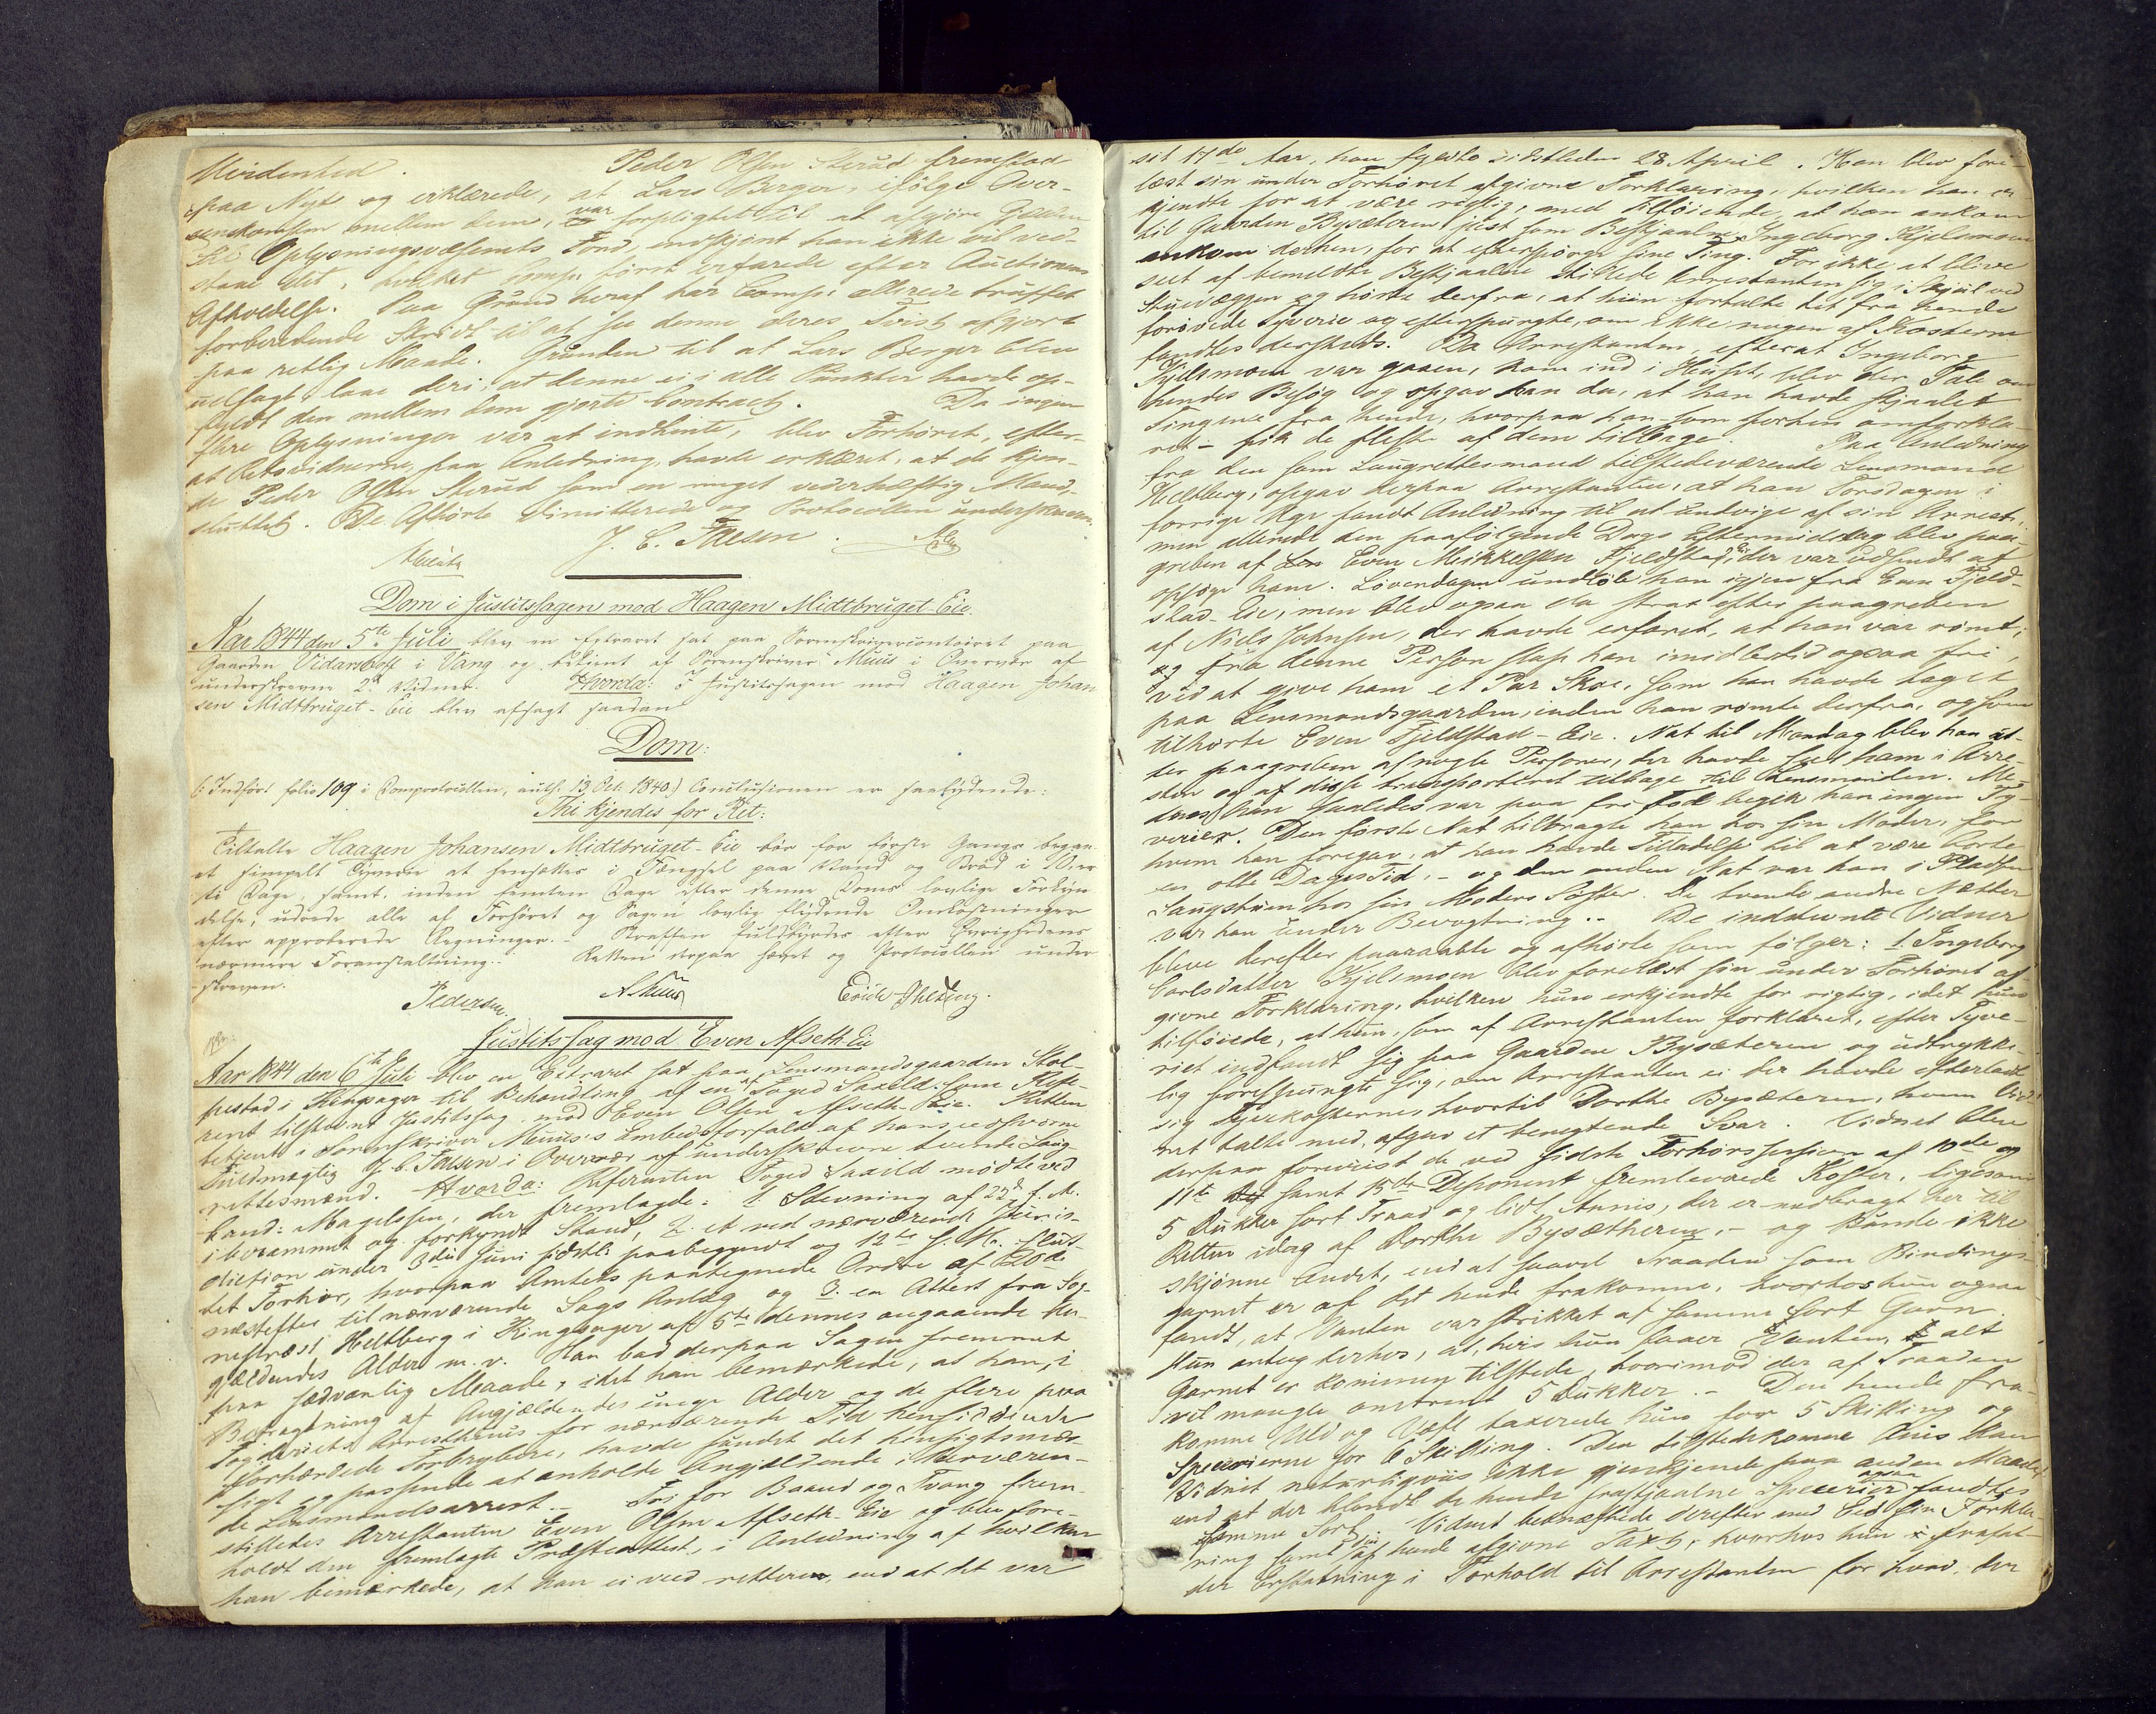 Mindenhed. Peder Olsen Sterud fremstod
paa Nyt og erklærede, at Lars Berger, ifølge Over-
enskomsten mellem dem, var forpligtet til at afgjöre Gjælden
til Oplysningsvæsenets Fond, endskjönt han ikke vil ved-
staae det, hvilket Comp. først erfarede efter Auctionens
Afholdelse. Paa Grund heraf har Comp: allerede truffet
forberedende Skridt til at faae denne deres Tvist afgjort
paa retlig Maade. Grunden til at Lars Berger blev
udsagt laae deri, at denne ei i alle Punkter havde op-
fyldt den mellem dem gjorte Contract. Da ingen
flere Oplysninger var at indhente, blev Forhöret, efter-
at Retsvidnerne, paa Anledning, havde erklæret, at de kjen-
de Peder Olsen Sterud som en meget vederhæftig Mand,
sluttet. De Afhörte dimitterede og Protocollen underskreven.
J. C. Thesen.
Dom i Justitssagen mod Haagen Midtbruget-Eie.
Aar 1844 den 5te Juli blev en Extraret sat paa Sorenskrivercontoiret paa
Gaarden Vidarshof i Vang og betjent af Sorenskriver Muus i Overvær af
underskrevne 2de Vidner. Hvorda: i Justitssagen mod Haagen Johan
sen Midtbruget-Eie blev afsagt saadan
Dom:
(: Indført folio 109 i Domprotocollen, auth. 13 Oct. 1840.) Conclusionen er saalydende:
Thi kjendes for Ret:
Tiltalte Haagen Johansen Midtbruget-Eie bör for første Gang begaa-
et simpelt Tyverie at hensættes i Fængsel paa Vand og Bröd i
ti Dage, samt inden femten Dage efter denne Doms lovlige Forkyn
delse, udrede alle af Forhöret og Sagen lovlig flydende Omkostninger
efter approberede Regninger. Straffen fuldbyrdes efter Övrighedens
nærmere Foranstaltning. Retten derpaa hævet og Protocollen under
skreven.
Pedersen. AMuus
Justitssag mod Even Afseth-Eie
Aar 1844 den 6te Juli blev en Extraret sat paa Lensmandsgaarden Stol-
pestad i Ringsager til Behandling af en af Foged Saxild som Refe-
rent tilstevnt Justitssag mod Even Olsen Afseth-Eie. Retten
betjent i Sorenskriver Muus's Embedsforfald af hans edsvorne
Fuldmægtig J. C. Thesen i Overvær af underskrevne tvende Laug-
rettesmænd. Hvorda: Referenten Foged Saxild mødte ved
Cand: Magelssen, der fremlagde: 1. Stevning af 22de f. M.
iberammet og forkyndt Stand, 2. et ved nærværende Juris-
diction under 3die Juni sidstl. paabegyndt og 12te s. M. slut-
tet Forhör, hvorpaa Amtets paategnede Ordre af
næstefter til nærværende Sags Anlæg og 3. en Attest fra Sog-
nepræst Heltberg i Ringsager af 5te dennes angaaende An-
gjældendes Alder m. v. Han bad derpaa Sagen fremmet
paa sædvanlig Maade, idet han bemærkede, at han, i
Betragtning af Angjældendes unge Alder og de flere paa
Fogderiets Arresthuus for nærværende Tid hensiddende
forhærdede Forbrydere, havde fundet det hensigtsmæs-
sigt og passende at anholde Angjældende i nærværen-
de Lensmandsarrest. Fri for Baand og Tvang frem-
stilledes Arrestanten Even Olsen Afseth-Eie og blev fore-
holdt den fremlagte Præsteattest, i Anledning af hvilken
han bemærkede, at han ei veed rettere, end at det var
sit 17de Aar, han fyldte sidstleden 28 April. Han blev fore-
læst sin under Forhöret afgivne Forklaring, hvilken han er-
kjendte for at være rigtig, med Tilföiende, at han ankom
til Gaarden Bysæteren just som Bestjaalne Ingeborg Kjelsmoen
ankom derhen, for at efterspörge sine Ting. For ikke at blive
seet af bemeldte Bestjaalne stillede Arrestanten sig i Skjul ved
Stuevæggen og hörte derfra, at hun fortalte det fra hende
forövede Tyverie og efterspurgte, om ikke nogen af Kosterne
fandtes dersteds. Da Arrestanten, efterat Ingeborg
Kjelsmoen var gaaen, kom ind i Huset, blev der Tale om
hendes Besög og opgav han da, at han havde stjaalet
Tingene fra hende, hvorpaa han – som forhen omforkla-
ret – fik de fleste af dem tilbage. Paa Anledning
fra den som Laugrettesmand tilstedeværende Lensmand
Heltberg, opgav derpaa Arrestanten, at han Torsdagen i
forrige Uge fandt Anledning til at undvige af sin Arrest,
men allerede den paafölgende Dags Eftermiddag blev paa-
greben af Even Mikkelsen Fjeldstad-Eie, der var udsendt at
opsöge ham. Löverdagen undlöb han igjen fra Even Fjeld-
stad-Eie, men blev ogsaa da strax efter paagreben
af Niels Johnsen, der havde erfaret, at han var römt;
og fra denne Person slap han imidlertid ogsaa fri,
ved at give ham et Par Skoe, som han havde taget
paa Lensmandsgaarden, inden han römte derfra, og som
tilhörte Even Fjeldstad-Eie. Nat til Mandag blev han at-
ter paagreben af nogle Personer, der havde seet ham i Arre-
sten og af disse transporteret tilbage til Lensmanden. Me-
dens han saaledes var paa fri Fod begik han ingen Ty-
verier. Den første Nat tilbragte han hos sin Moder, for
hvem han foregav, at han havde Tilladelse til at være borte
en otte Dages Tid, – og den anden Nat var han i Pladsen
Laugstuen hos sin Moders Söster. De tvende andre Nætter
var han under Bevogtning. – De indstevnte Vidner
bleve derefter paaraabte og afhörte som fölger: 1. Ingeborg
Carlsdatter Kjelsmoen blev forelæst sin under Forhöret af-
givne Forklaring, hvilken hun erkjendte for rigtig, idet hun
tilföiede, at hun, som af Arrestanten forklaret, efter Tyve-
riet indfandt sig paa Gaarden Bysæteren og udtrykke-
lig forespurgte sig, om Arrestanten ei der havde efterladt
sig Tyvekosterne, hvortil Dorthe Bysæteren, hvem Vid-
net talte med, afgav et benegtende Svar. Vidnet blev
derpaa foreviist de ved sidste Forhörssession af 10de og
11te samt 15de Deponent fremlevnede Koster, ligesom
5 Dukker sort Traad og lidt Annis, der er medbragt her til
Retten idag af Dorthe Bysætheren, – og kunde ikke
skjönne Andet, end at saavel Traaden som Bindings-
garnet er af det hende frakomne, hvorhos hun ogsaa
fandt, at Vanten var strikket af samme sort Garn.
Hun antog derhos, at, hvis hun faaer Vanten, alt
Garnet er kommen tilstede, hvorimod der af Traaden
vil mangle omtrent 5 Dukker. – Den hende fra-
komne Uld og Væft taxerede hun for 5 Skilling og
Specerierne for 6 Skilling. Den tilstedekomne Anis kan
Vidnet naturligviis ikke gjenkjende paa anden Maade,
end at der blandt de hende frastjaalne Specerier ogsaa fandtes
samme Sort. Vidnet bekræftede derefter med Eed sin Forkla-
ring samt den af hende afgivne Taxt, hvorhos hun frafal-
der Erstatning i Forhold til Arrestanten for hvad der